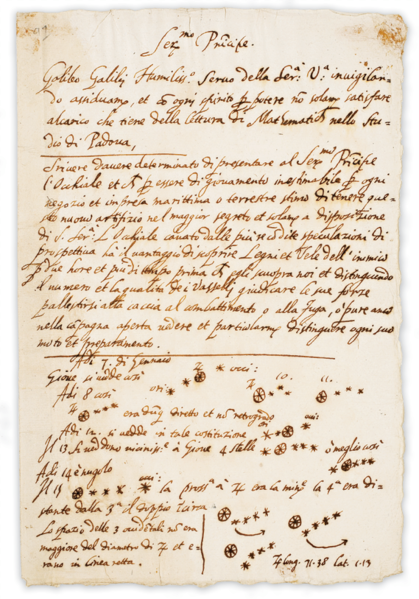 Ser.mo Prīcipe.
Galileo Galilej Humiliss.o Servo della Ser.a V.a invigilan-
do assiduam.e, et cō ogni spirito p potere nō solam.e satisfare
al carico che tiene della lettura di Matematich.e nello Stu-
dio di Padova,
Scrivere davere determinato di presentare al Ser.mo Prīcipe
l'Occhiale et p essere di giovamento inestimabile p ogni
negozio et impresa maritima o terrestre stimo di tenere que-
sto nuovo artifizio nel maggior segreto et solam.e a disposizione
di S. Ser.a L'Occhiale cavato dalle più recōdite speculazioni di
prospettiva ha il vantaggio di scoprire Legni et Vele dell'inimico
p due hore et più di tempo prima ch egli scuopra noi et distinguendo
il numero et la qualità dei Vasselli giudicare le sue forze
pallestirsi alla caccia al combattimento o alla fuga, o pure anco
nella cāpagna aperta vedere et particolarm.e distinguere ogni suo
moto et preparamento.
Adi 7. di Gennaio
Giove si vede così ori: occi:
Adi 8 così
era dūq diretto et nō retrogrado
10. 11.
Adi 12. si vedde in tale costituzione
Il 13 si veddono vicinis.e à Giove 4 stelle o meglio così
Adi 14 è nugolo
Il 15 la pross.a à ♃ era la min.e la 4.a era di-
stante dalla 3.a il doppio īcirca
Lo spazio delle 3 occidētali nō era
maggiore del diametro di ♃ et e-
rano in linea retta.
♃ long. 71.38 lat. 1.13